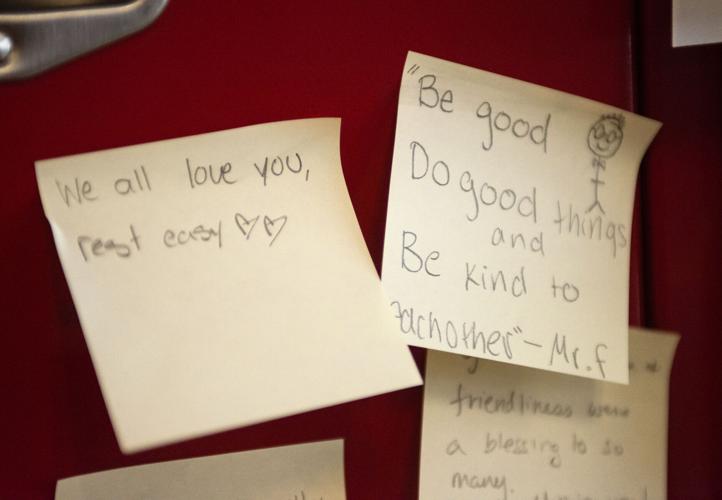 We all love you,
rest easy ♡♡
"Be good
Do good things
and
Be kind to
eachother" - Mr.f
friendliness were
a blessing to so
many.